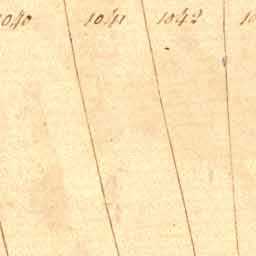 1040 1041 1042